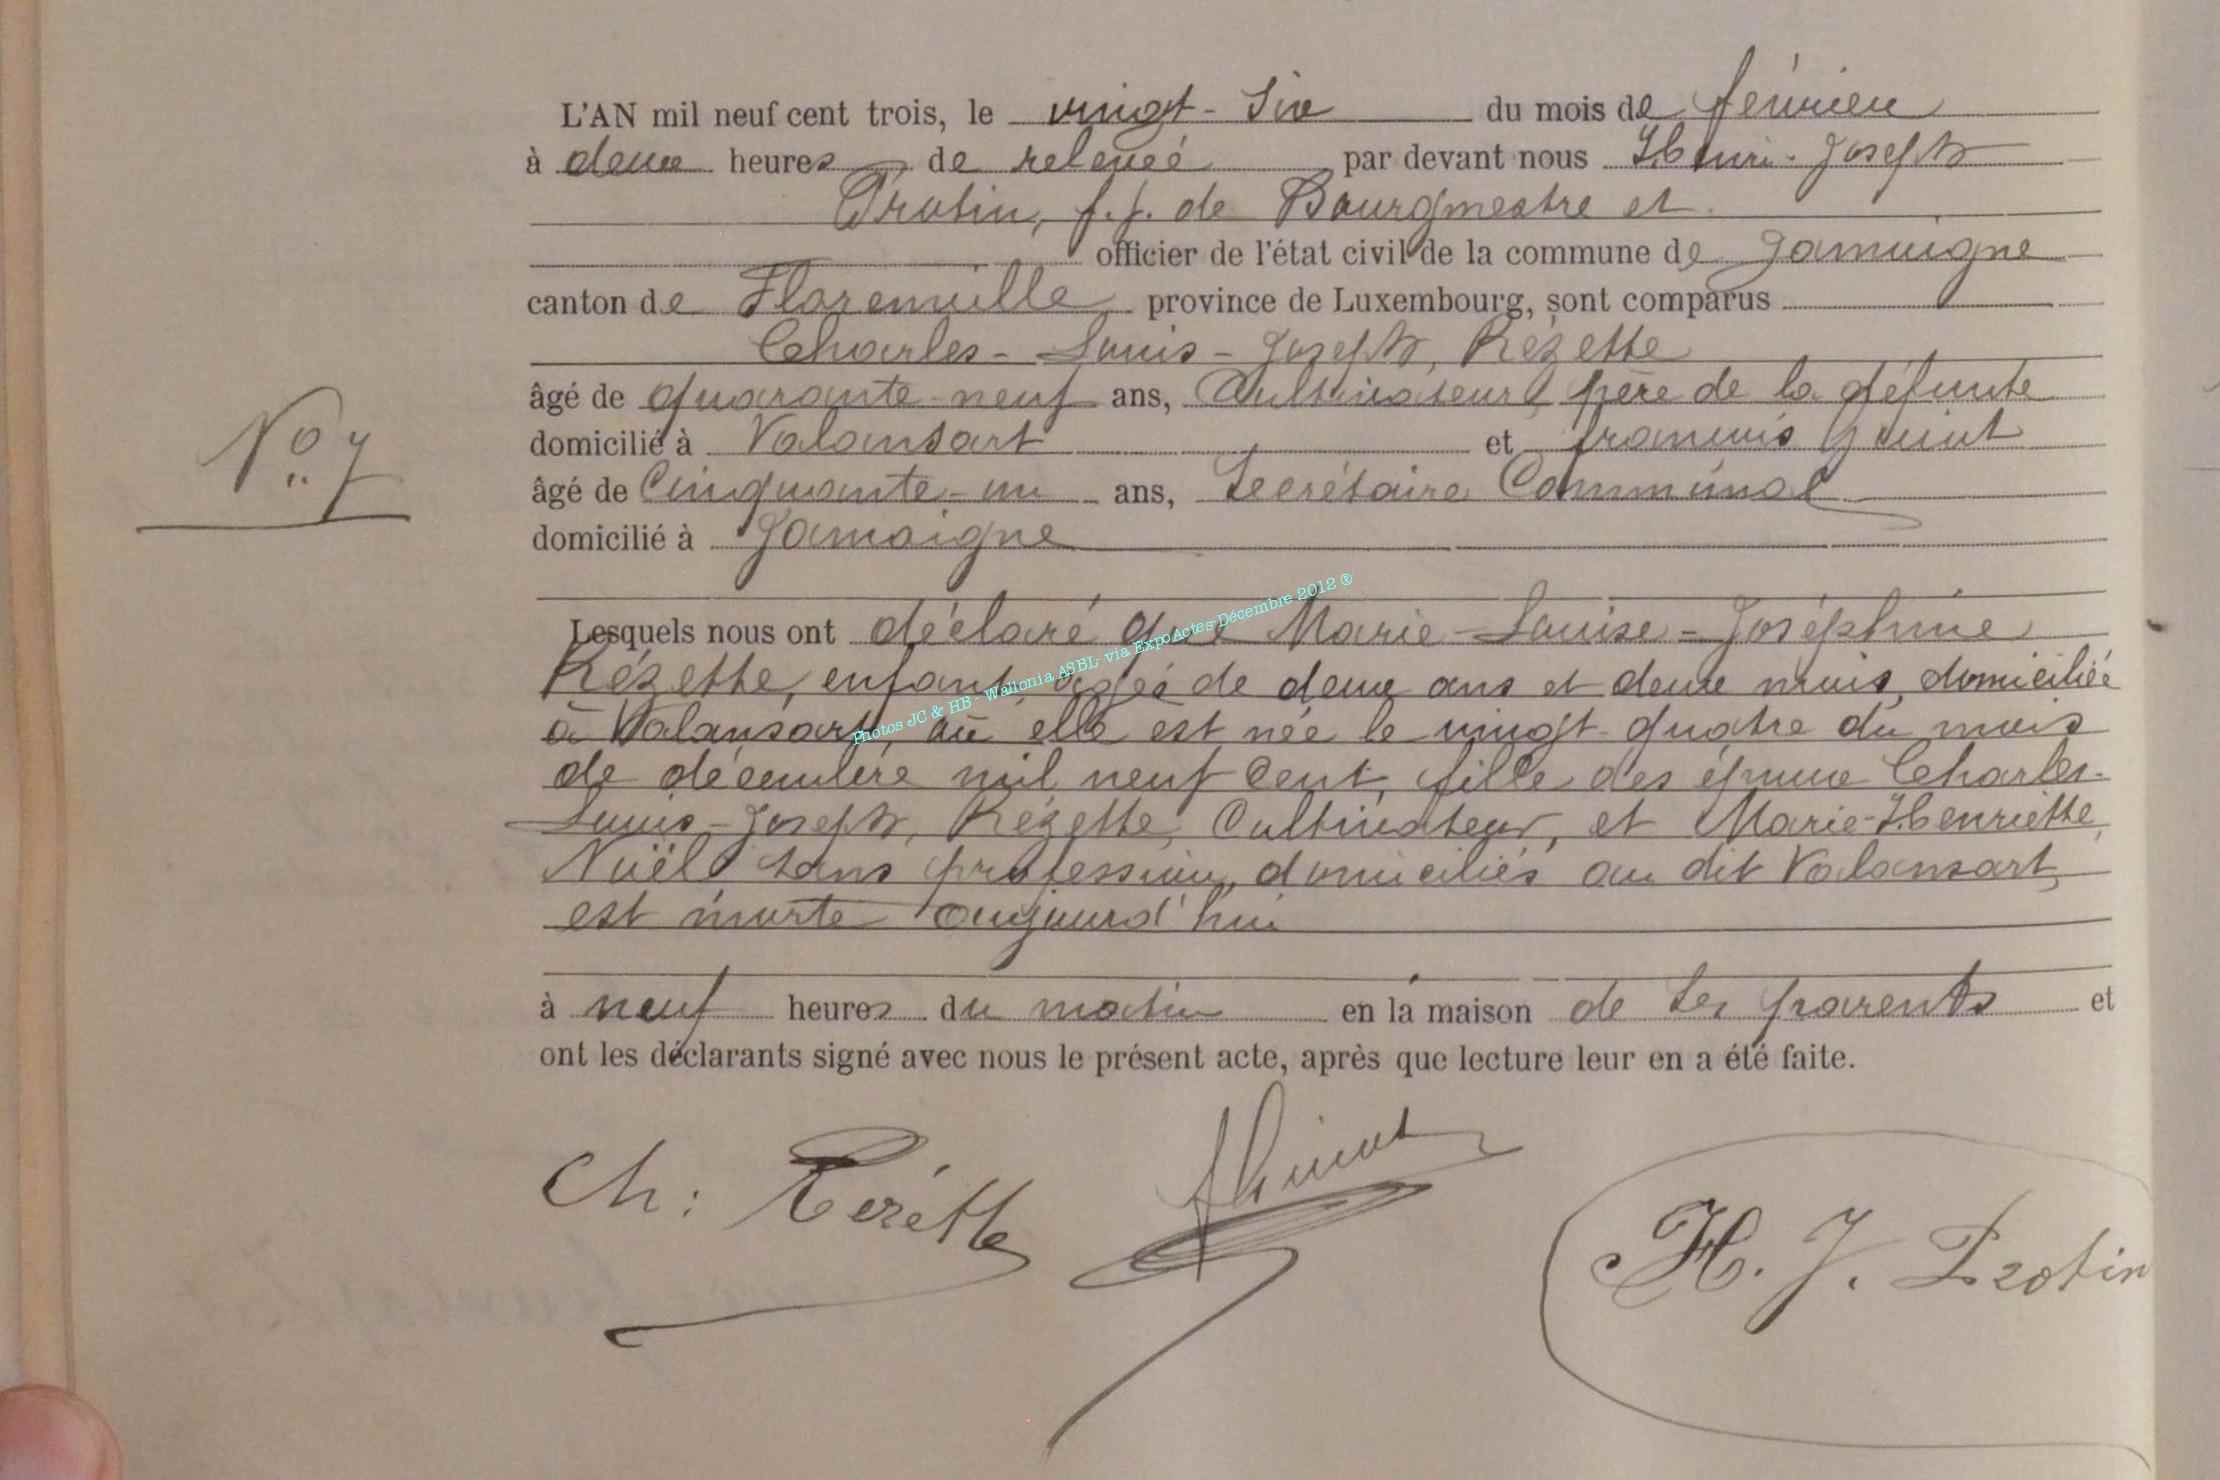 L'AN mil neuf cent trois, le vingt-six du mois de février
à deux heures de relevée par devant nous Henri-Joseph
Protin, f.f. de Bourgmestre et
officier de l'état civil de la commune de Jamoigne
canton de Florenville province de Luxembourg, sont comparus
Charles-Louis-Joseph, Rézette
âgé de quarante-neuf ans, Cultivateur, père de la défunte
domicilié à Valansart et francois
N° 7
âgé de Cinquante-un ans, Secrétaire Communal
domicilié à Jamoigne
Lesquels nous ont déclaré que Marie-Louise-Joséphine
Rézette, enfant agée de deux ans et deux mois, domiciliée
à Valansart, où elle est née le vingt-quatre du mois
de décembre mil neuf cent, fille des époux Charles-
Louis-Joseph, Rézette, Cultivateur, et Marie-Henriette,
Noël sans profession, domiciliés au dit Valansart,
est morte aujourd'hui
à neuf heures du matin en la maison de ses parents et
ont les déclarants signé avec nous le présent acte, après que lecture leur en a été faite.
Ch: Rézette
H. J. Protin
Photos JC & HB - Wallonia ASBL via ExpoActes-Décembre 2012 ®